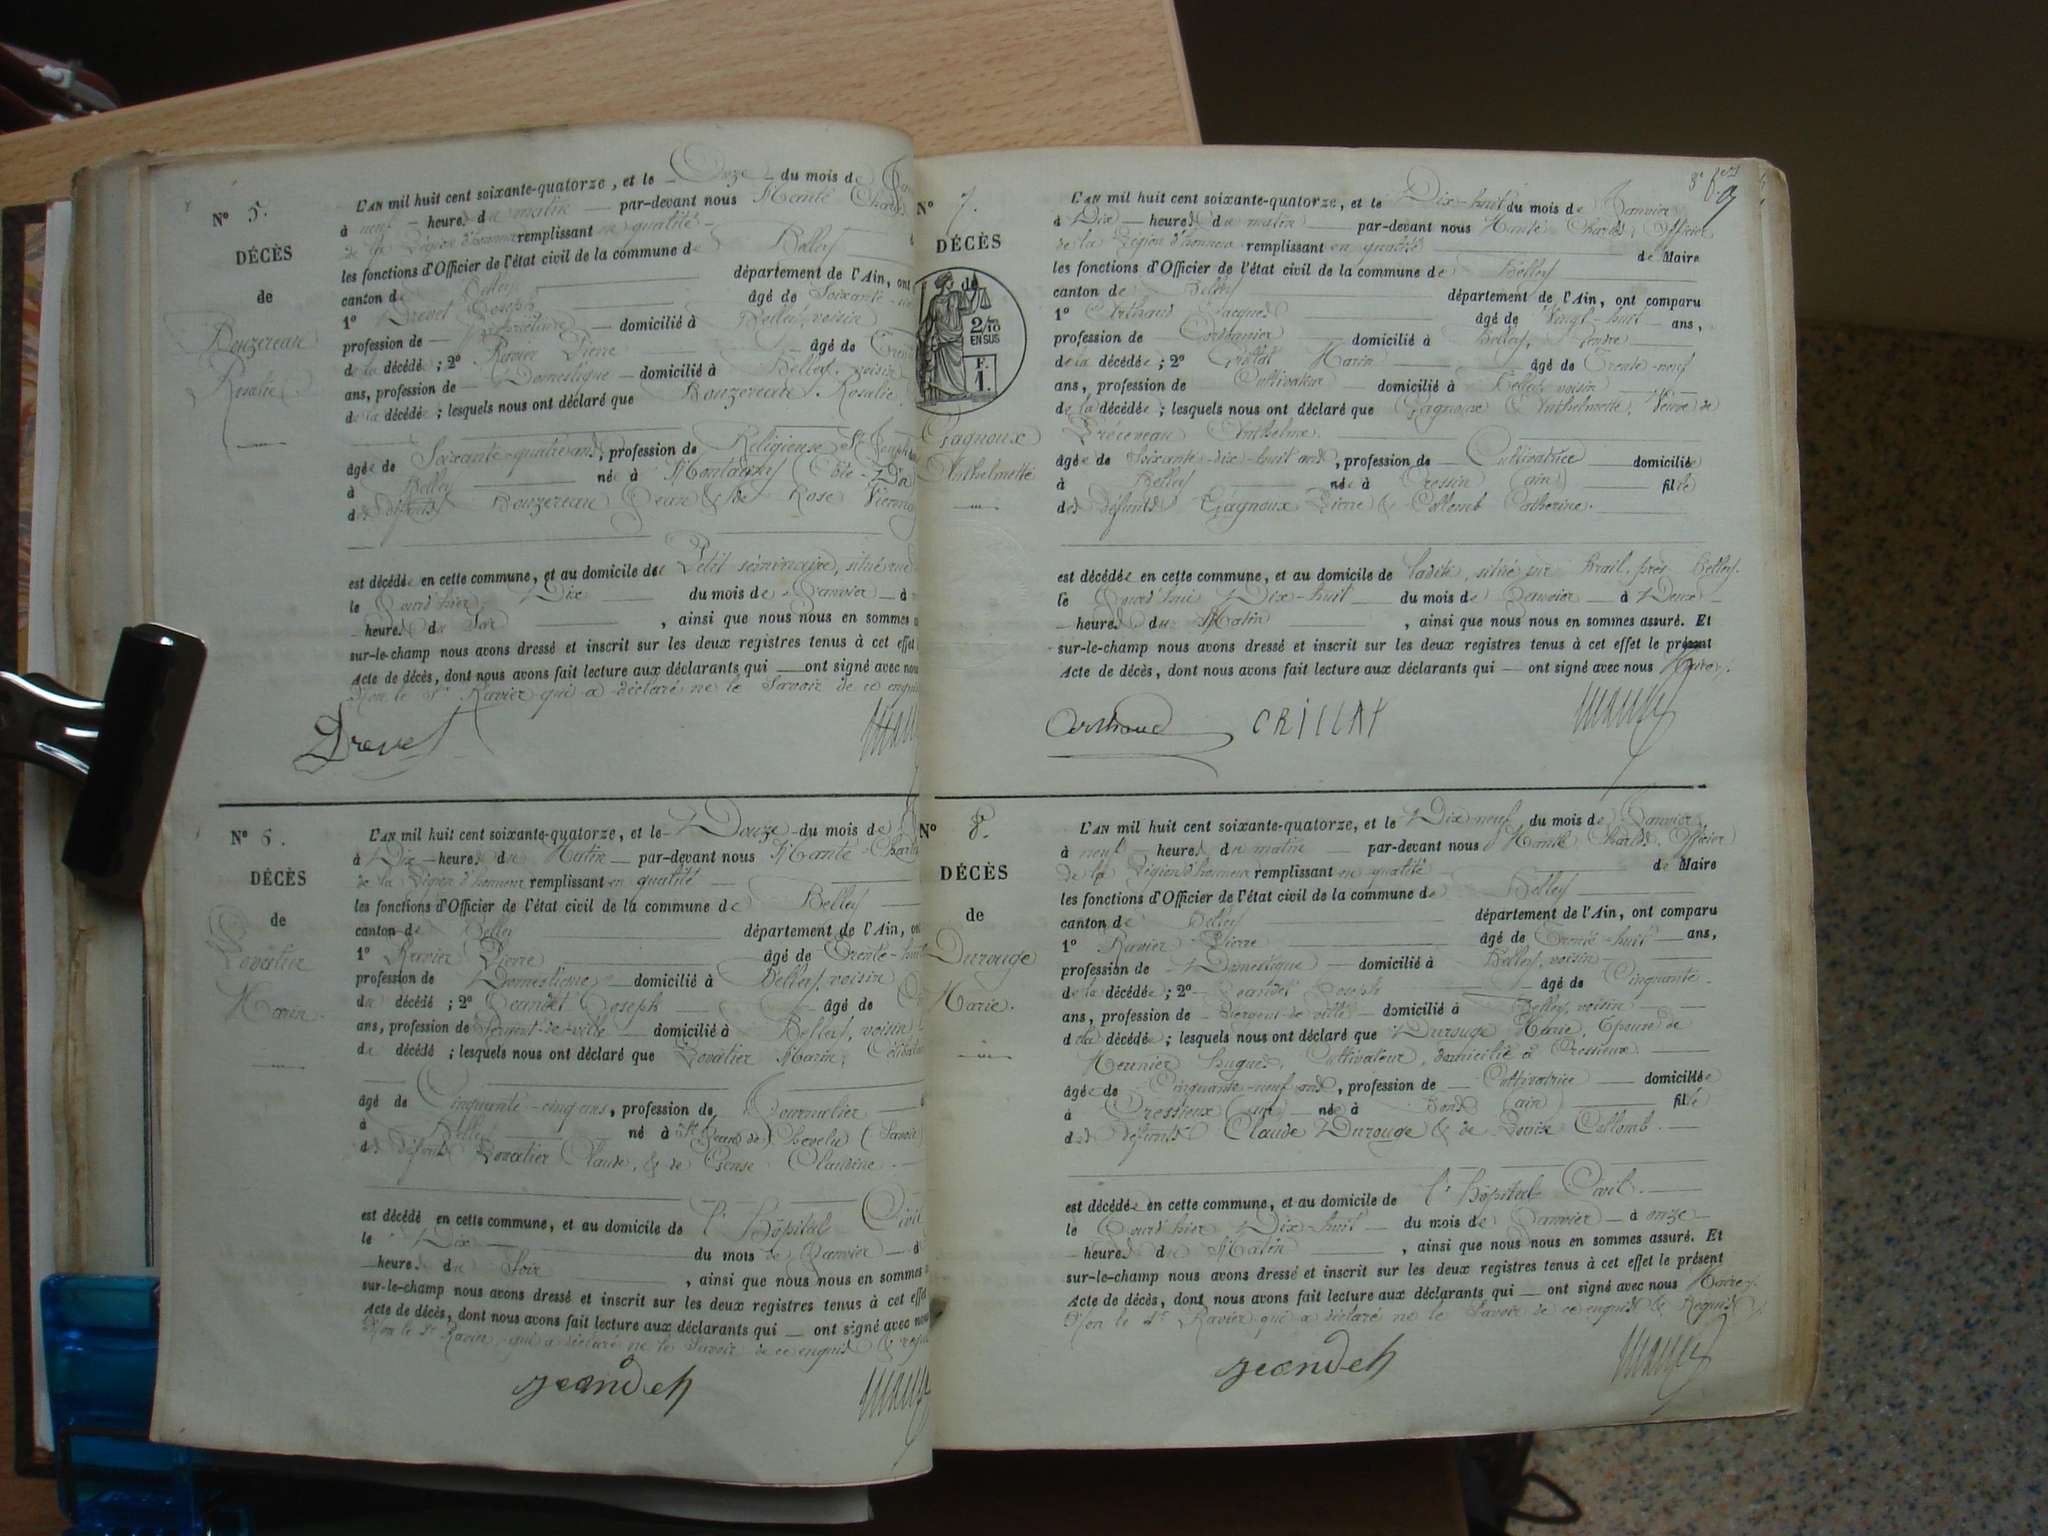 N° 5.
DÉCÈS
de
Bouzereau
Rosalie.
L'AN mil huit cent soixante-quatorze, et le Onze du mois de
à neuf heures du matin par-devant nous Manté Charles
de la Légion d'honneur remplissant en qualité
les fonctions d'Officier de l'état civil de la commune de Belley
canton de Belley département de l'Ain, ont
1° Drevet Joseph âgé de Soixante
profession de Propriétaire domicilié à Belley, voisin
de la décédée ; 2° Ravier Pierre âgé de Trente
ans, profession de Domestique domicilié à Belley, voisin
de la décédée ; lesquels nous ont déclaré que Bouzereau Rosalie,
âgée de Soixante-quatre ans, profession de Religieuse St Joseph
à Belley née à (Côte-D'or
des défunts Bouzereau Jean & de Rose
est décédée en cette commune, et au domicile du Petit séminaire, situé rue
le Jourd'hier, Dix du mois de Janvier à
heures du Soir , ainsi que nous nous en sommes
sur-le-champ nous avons dressé et inscrit sur les deux registres tenus à cet effet
Acte de décès, dont nous avons fait lecture aux déclarants qui ont signé avec nous
Non le Sr Ravier qui a déclaré ne le Savoir de ce enquis
Drevet
N° 6.
DÉCÈS
de
Lovatier
Marin.
L'AN mil huit cent soixante-quatorze, et le Douze du mois de
à Dix heures du Matin par-devant nous Manté Charles
de la Légion d'honneur remplissant en qualité
les fonctions d'Officier de l'état civil de la commune de Belley
canton de Belley département de l'Ain, ont
1° Ravier Pierre âgé de Trente-huit
profession de Domestique domicilié à Belley, voisin
du décédé ; 2° Jeandet Joseph âgé de
ans, profession de Sergent-de-ville domicilié à Belley, voisin
du décédé ; lesquels nous ont déclaré que Lovatier Marin, Célibataire
âgé de Cinquante-cinq ans, profession de Journalier
à Belley né à St Jean de Chevelu (Savoie)
des défunts Lovatier Claude, & de Claudine.
est décédé en cette commune, et au domicile de l'Hôpital Civil
le Dix du mois de Janvier à
heures du Soir , ainsi que nous nous en sommes
sur-le-champ nous avons dressé et inscrit sur les deux registres tenus à cet effet
Acte de décès, dont nous avons fait lecture aux déclarants qui ont signé avec nous
Non le Sr Ravier qui a déclaré ne le Savoir de ce enquis &
jeandet
8e
N° 7.
DÉCÈS
de
2/10
EN SUS
F.
1.
Gagnoux
Anthelmette
L'AN mil huit cent soixante-quatorze, et le Dix-huit du mois de Janvier
à Dix heures du matin par-devant nous Manté Charles, Officier
de la Légion d'honneur remplissant en qualité de Maire
les fonctions d'Officier de l'état civil de la commune de Belley
canton de Belley département de l'Ain, ont comparu
1° Arthaud Jacques âgé de Vingt-huit ans,
profession de Cordonnier domicilié à Belley, Gendre
de la décédée ; 2° Crillat Marin âgé de Trente-neuf
ans, profession de Cultivateur domicilié à Belley, voisin
de la décédée ; lesquels nous ont déclaré que Gagnoux Anthelmette, Veuve de
Anthelme.
âgée de Soixante-dix-huit ans, profession de Cultivatrice domiciliée
à Belley née à Cressin (ain) fille
des défunts Gagnoux Pierre & Collomb Catherine.
est décédée en cette commune, et au domicile de ladite, situé sur Brail, près Belley.
le Jourd'hui Dix-huit du mois de Janvier à Deux
heures du Matin , ainsi que nous nous en sommes assuré. Et
sur-le-champ nous avons dressé et inscrit sur les deux registres tenus à cet effet le présent
Acte de décès, dont nous avons fait lecture aux déclarants qui ont signé avec nous Maire.
Arthaud CRILLAT
N° 8.
DÉCÈS
de
Durouge
Marie.
L'AN mil huit cent soixante-quatorze, et le Dix-neuf du mois de Janvier,
à neuf heures du matin par-devant nous Manté Charles, Officier
de la Légion d'honneur remplissant en qualité de Maire
les fonctions d'Officier de l'état civil de la commune de Belley
canton de Belley département de l'Ain, ont comparu
1° Ravier Pierre âgé de Trente-huit ans,
profession de Domestique domicilié à Belley, voisin
de la décédée ; 2° Jeandet Joseph âgé de Cinquante
ans, profession de Sergent de ville domicilié à Belley, voisin
de la décédée ; lesquels nous ont déclaré que Durouge Marie, Epouse de
Meunier Hugues, Cultivateur, domicilié à Cressieux.
âgée de Cinquante-neuf ans, profession de Cultivatrice domiciliée
à Cressieux (ain) née à Bons (ain) fille
des défunts Claude Durouge & de Collomb.
est décédée en cette commune, et au domicile de l'hôpital Civil.
le Jourd'hier Dix-huit du mois de Janvier à onze
heures du Matin , ainsi que nous nous en sommes assuré. Et
sur-le-champ nous avons dressé et inscrit sur les deux registres tenus à cet effet le présent
Acte de décès, dont nous avons fait lecture aux déclarants qui ont signé avec nous Maire.
Non le Sr Ravier qui a déclaré ne le Savoir de ce enquis & Requis
jeandet